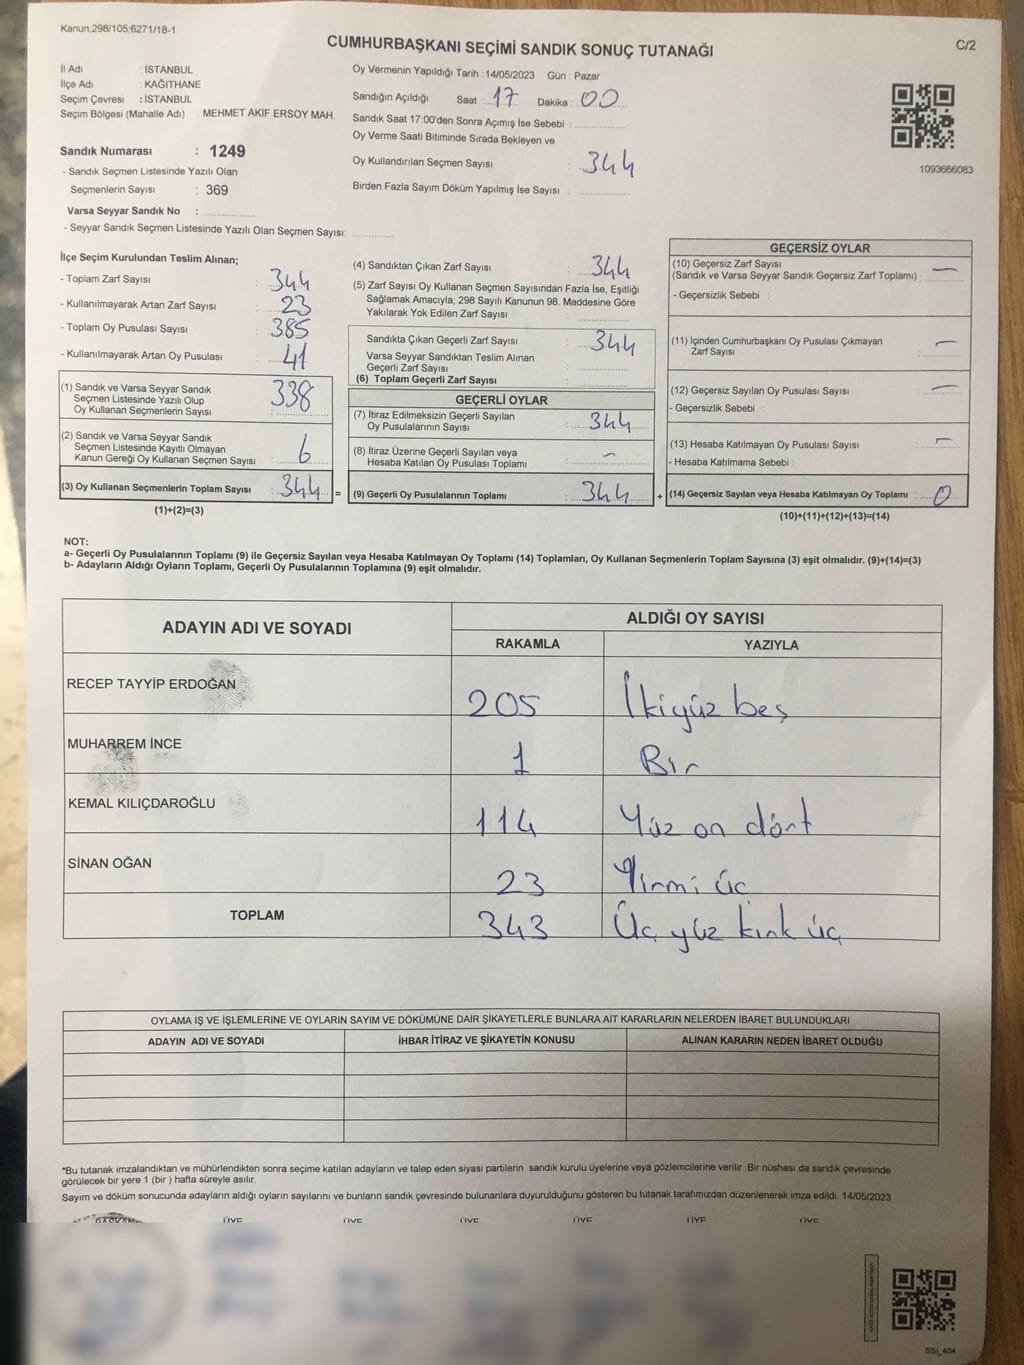 Kanun;298/105;6271/18-1
CUMHURBAŞKANI SEÇİMİ SANDIK SONUÇ TUTANAĞI
C/2
İl Adı : İSTANBUL
İlçe Adı : KAĞITHANE
Seçim Çevresi : İSTANBUL
Seçim Bölgesi (Mahalle Adı) : MEHMET AKİF ERSOY MAH.
Sandık Numarası : 1249
- Sandık Seçmen Listesinde Yazılı Olan
Seçmenlerin Sayısı : 369
Varsa Seyyar Sandık No :
- Seyyar Sandık Seçmen Listesinde Yazılı Olan Seçmen Sayısı:
Oy Vermenin Yapıldığı Tarih : 14/05/2023 Gün : Pazar
Sandığın Açıldığı Saat : 17 Dakika : 00
Sandık Saat 17:00'den Sonra Açımış İse Sebebi :
Oy Verme Saati Bitiminde Sırada Bekleyen ve
Oy Kullandırılan Seçmen Sayısı : 344
Birden Fazla Sayım Döküm Yapılmış İse Sayısı :
1093666083
İlçe Seçim Kurulundan Teslim Alınan;
- Toplam Zarf Sayısı : 344
- Kullanılmayarak Artan Zarf Sayısı : 23
- Toplam Oy Pusulası Sayısı : 385
- Kullanılmayarak Artan Oy Pusulası : 41
(1) Sandık ve Varsa Seyyar Sandık
Seçmen Listesinde Yazılı Olup
Oy Kullanan Seçmenlerin Sayısı : 338
(2) Sandık ve Varsa Seyyar Sandık
Seçmen Listesinde Kayıtlı Olmayan
Kanun Gereği Oy Kullanan Seçmen Sayısı : 6
(3) Oy Kullanan Seçmenlerin Toplam Sayısı : 344 =
(1)+(2)=(3)
(4) Sandıktan Çıkan Zarf Sayısı : 344
(5) Zarf Sayısı Oy Kullanan Seçmen Sayısından Fazla İse, Eşitliği
Sağlamak Amacıyla; 298 Sayılı Kanunun 98. Maddesine Göre
Yakılarak Yok Edilen Zarf Sayısı :
Sandıkta Çıkan Geçerli Zarf Sayısı : 344
Varsa Seyyar Sandıktan Teslim Alınan
Geçerli Zarf Sayısı :
(6) Toplam Geçerli Zarf Sayısı :
GEÇERLİ OYLAR
(7) İtiraz Edilmeksizin Geçerli Sayılan
Oy Pusulalarının Sayısı : 344
(8) İtiraz Üzerine Geçerli Sayılan veya
Hesaba Katılan Oy Pusulası Toplamı : –
(9) Geçerli Oy Pusulalarının Toplamı : 344 +
GEÇERSİZ OYLAR
(10) Geçersiz Zarf Sayısı
(Sandık ve Varsa Seyyar Sandık Geçersiz Zarf Toplamı) : –
- Geçersizlik Sebebi :
(11) İçinden Cumhurbaşkanı Oy Pusulası Çıkmayan
Zarf Sayısı : –
(12) Geçersiz Sayılan Oy Pusulası Sayısı : –
- Geçersizlik Sebebi :
(13) Hesaba Katılmayan Oy Pusulası Sayısı : –
- Hesaba Katılmama Sebebi :
(14) Geçersiz Sayılan veya Hesaba Katılmayan Oy Toplamı : 0
(10)+(11)+(12)+(13)=(14)
NOT:
a- Geçerli Oy Pusulalarının Toplamı (9) ile Geçersiz Sayılan veya Hesaba Katılmayan Oy Toplamı (14) Toplamları, Oy Kullanan Seçmenlerin Toplam Sayısına (3) eşit olmalıdır. (9)+(14)=(3)
b- Adayların Aldığı Oyların Toplamı, Geçerli Oy Pusulalarının Toplamına (9) eşit olmalıdır.
ADAYIN ADI VE SOYADI
ALDIĞI OY SAYISI
RAKAMLA YAZIYLA
RECEP TAYYİP ERDOĞAN 205 İkiyüz beş
MUHARREM İNCE 1 Bir
KEMAL KILIÇDAROĞLU 114 Yüz on dört
SİNAN OĞAN 23 Yirmi üç
TOPLAM 343 Üç yüz kırk üç
OYLAMA İŞ VE İŞLEMLERİNE VE OYLARIN SAYIM VE DÖKÜMÜNE DAİR ŞİKAYETLERLE BUNLARA AİT KARARLARIN NELERDEN İBARET BULUNDUKLARI
ADAYIN ADI VE SOYADI İHBAR İTİRAZ VE ŞİKAYETİN KONUSU ALINAN KARARIN NEDEN İBARET OLDUĞU
*Bu tutanak imzalandıktan ve mühürlendikten sonra seçime katılan adayların ve talep eden siyasi partilerin sandık kurulu üyelerine veya gözlemcilerine verilir. Bir nüshası da sandık çevresinde
görülecek bir yere 1 (bir ) hafta süreyle asılır.
Sayım ve döküm sonucunda adayların aldığı oyların sayılarını ve bunların sandık çevresinde bulunanlara duyurulduğunu gösteren bu tutanak tarafımızdan düzenlenerek imza edildi. 14/05/2023
BAŞKAN ÜYE ÜYE ÜYE ÜYE ÜYE ÜYE
SSİ_404